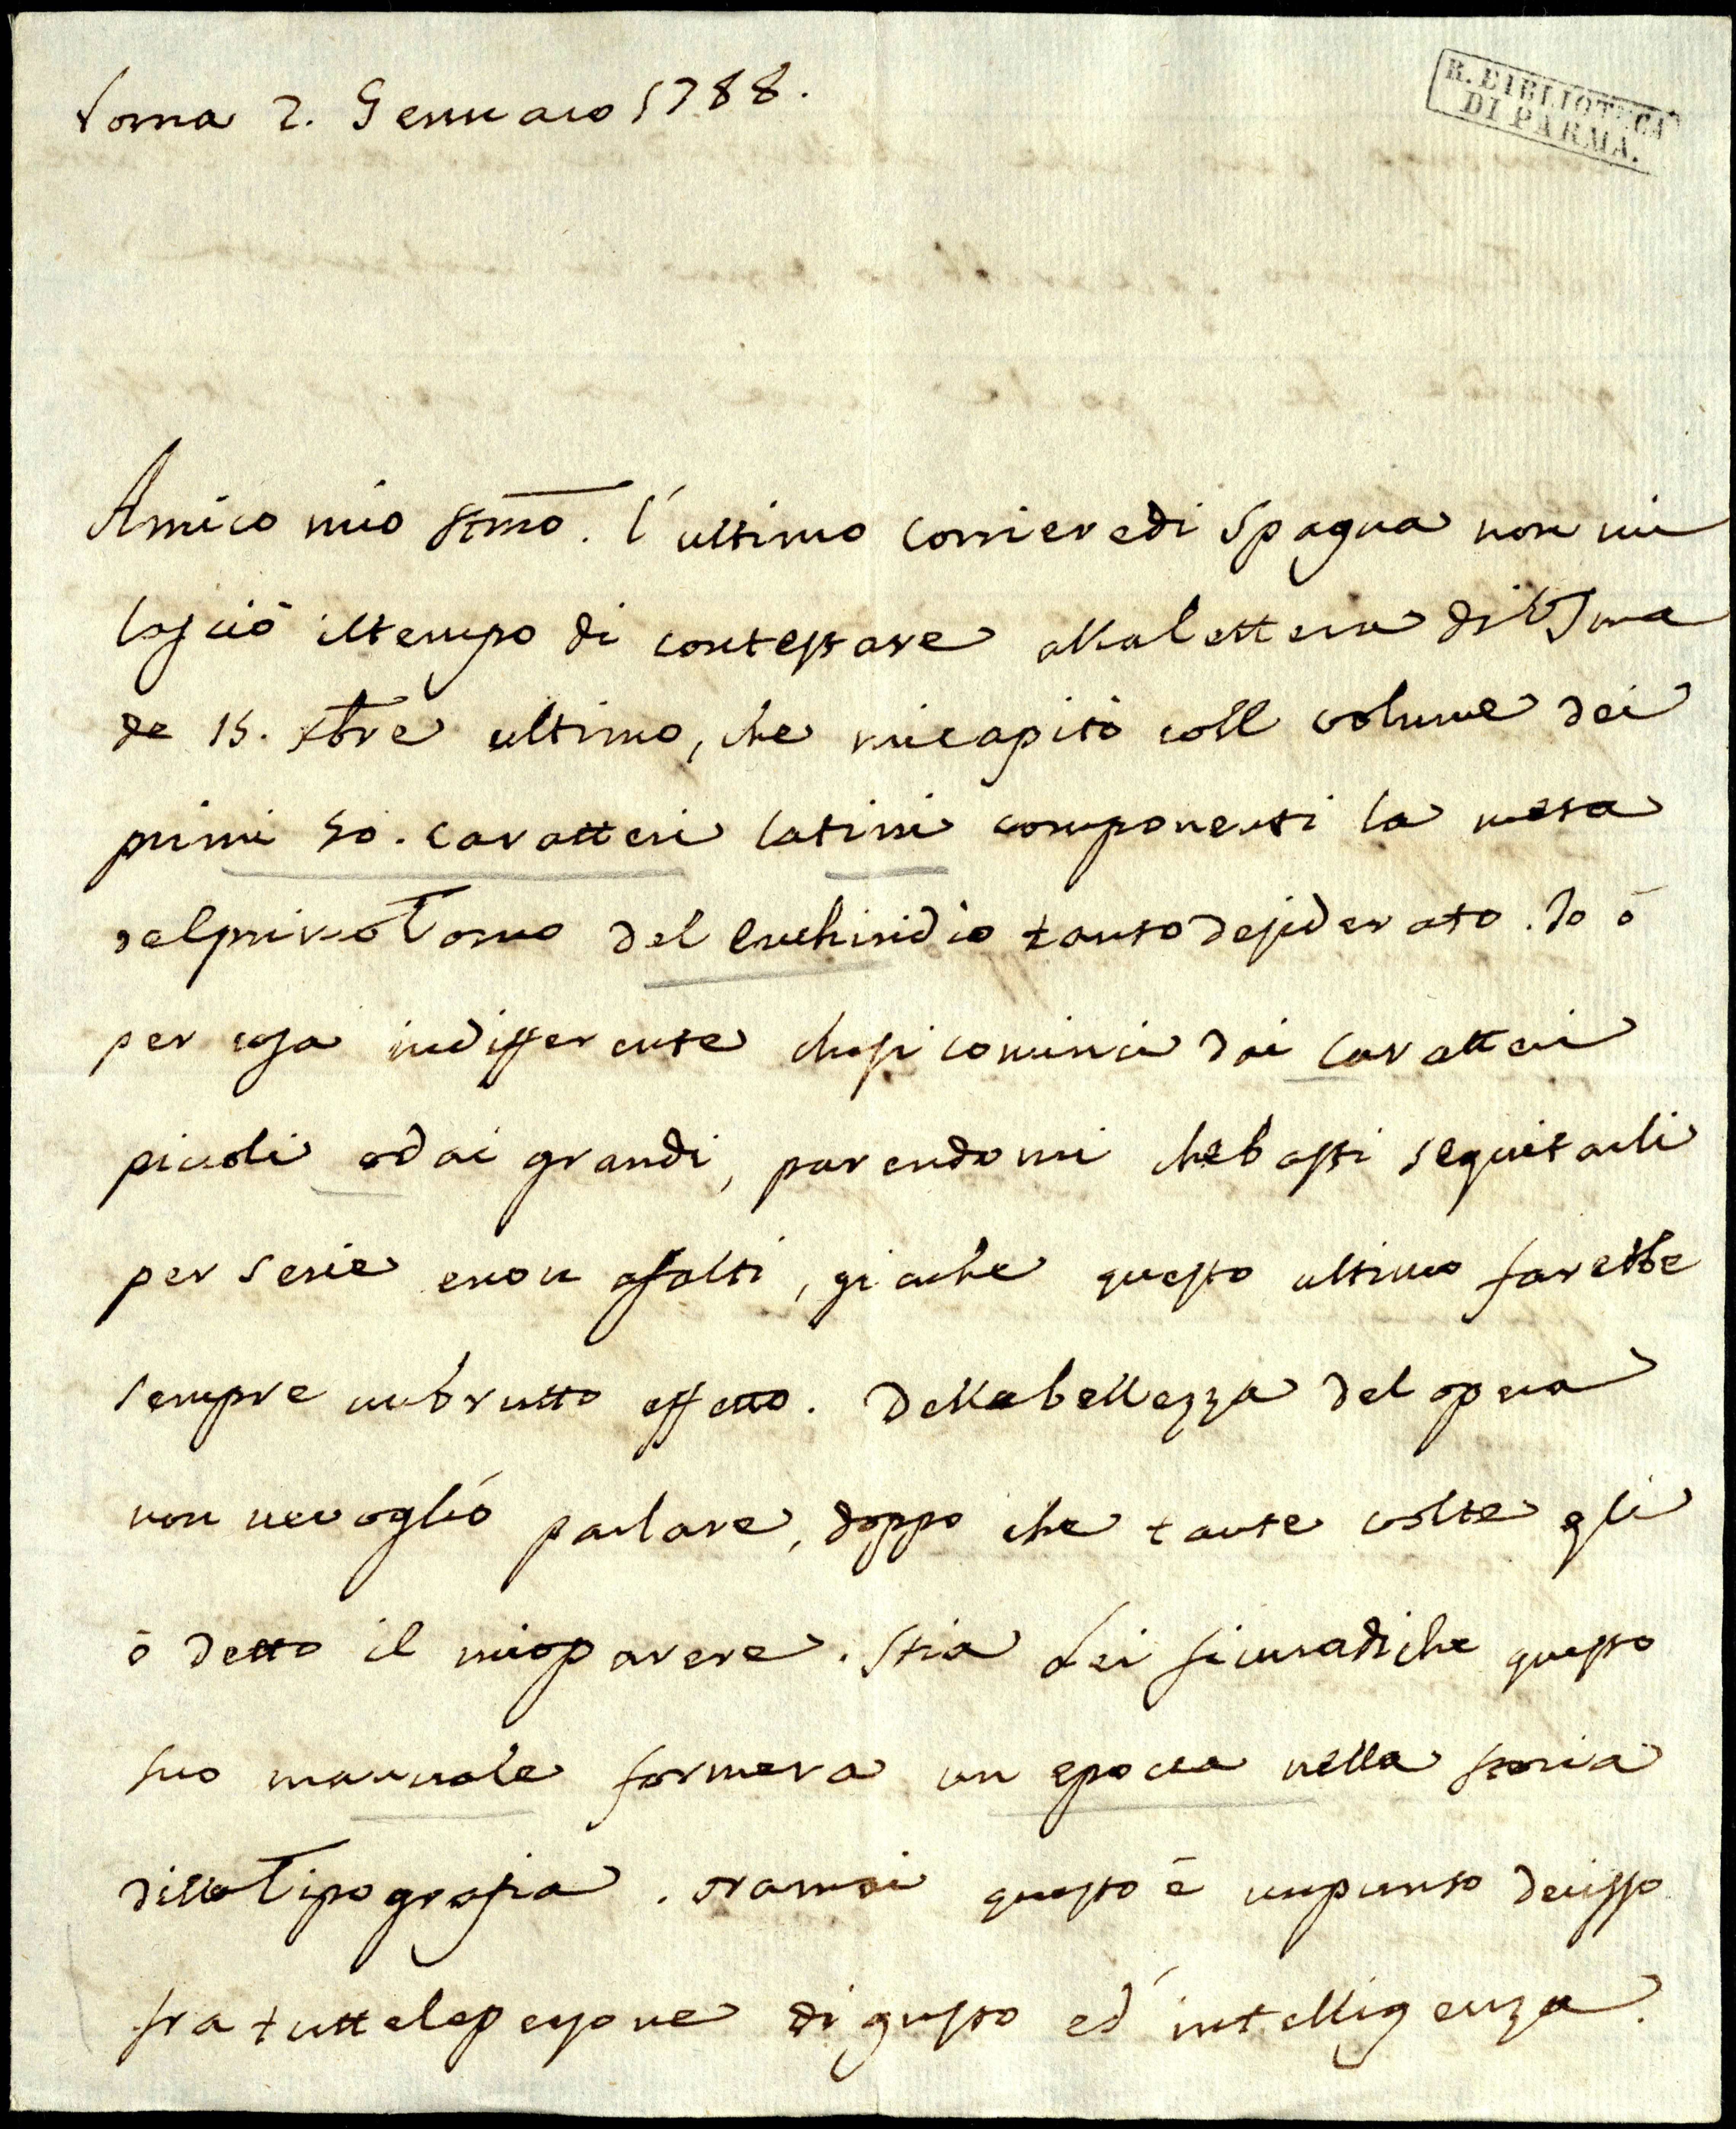 Roma 2. Gennaio 1788.
R. BIBLIOTECA
DI PARMA.
Amico mio stmo. l'ultimo corriere di Spagna non mi
lasciò il tempo di contestare alla lettera di VSma
de 15. Xbre ultimo, che ricapitò coll volume dei
primi 50. caratteri latini componenti la meta
del primo Tomo del Enchiridio tanto desiderato. Io ò
per cosa indifferente che si cominci dai caratteri
piccoli o dai grandi, parendomi che basti seguitarli
per serie e non a salti, giache questo ultimo farebbe
sempre un brutto effetto. Della bellezza del opera
non ne voglió parlare, doppo che tante volte gli
ò detto il mio parere. Stia Lei sicura di che questo
suo manuale formera un epocca nella storia
della Tipografia. oramai questo è un punto decisso
fra tutte le persone di gusto ed intelligenza.